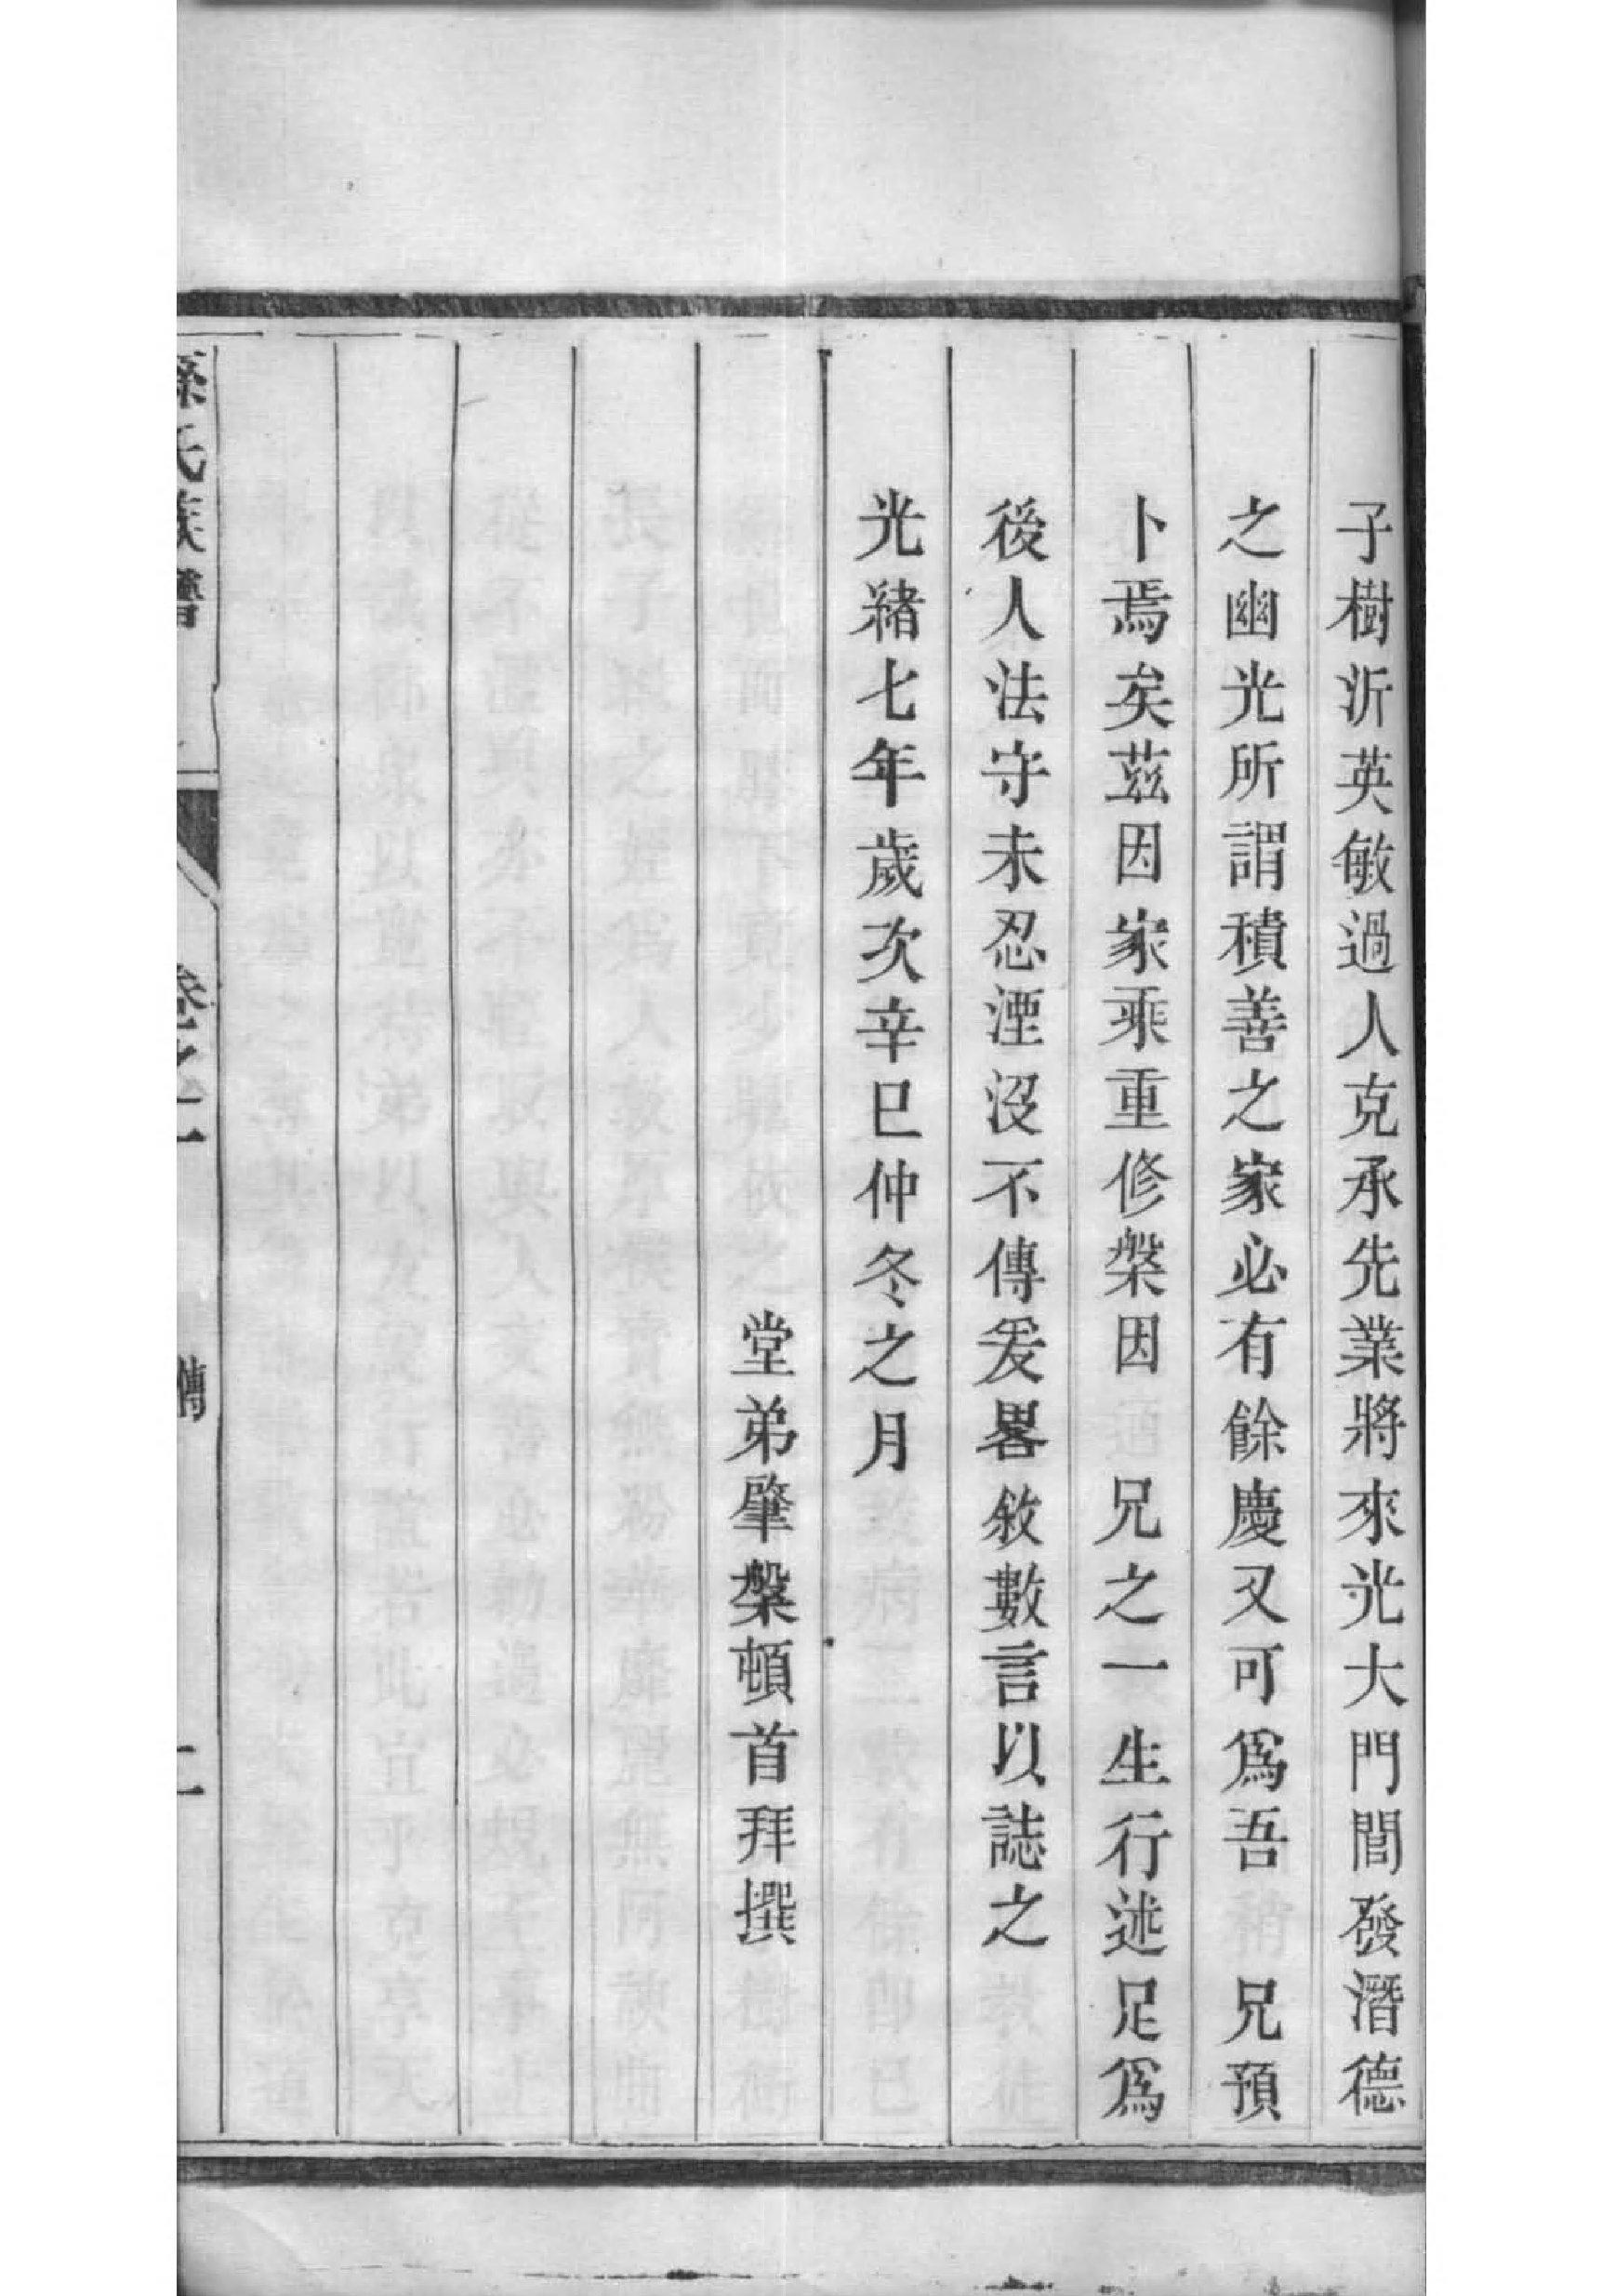 子樹沂英敏過人克承先業將來光大門閭發潛德
之幽光所謂積善之家必有餘慶又可爲吾 兄預
卜焉矣茲因家乘重修槃因 兄之一生行述足爲
後人法守未忍湮沒不傳爰畧敘數言以誌之
光緒七年歲次辛巳仲冬之月
堂弟肇槃頓首拜撰
孫氏族譜 卷之一 傳 二